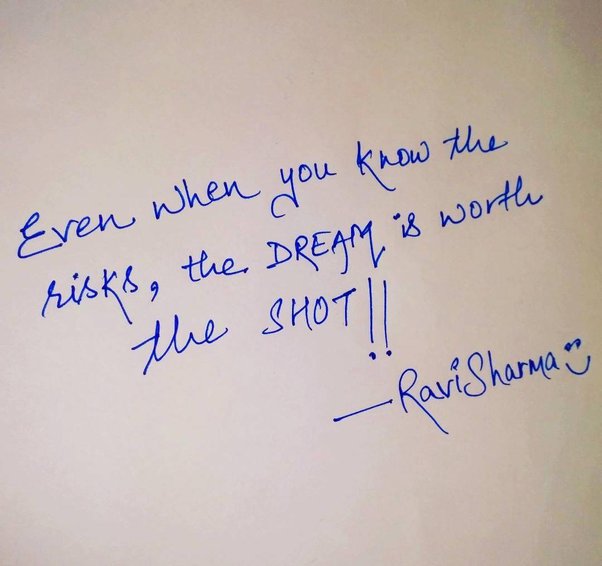 Even when you know the
risks, the DREAM is worth
the SHOT!!
—RaviSharma